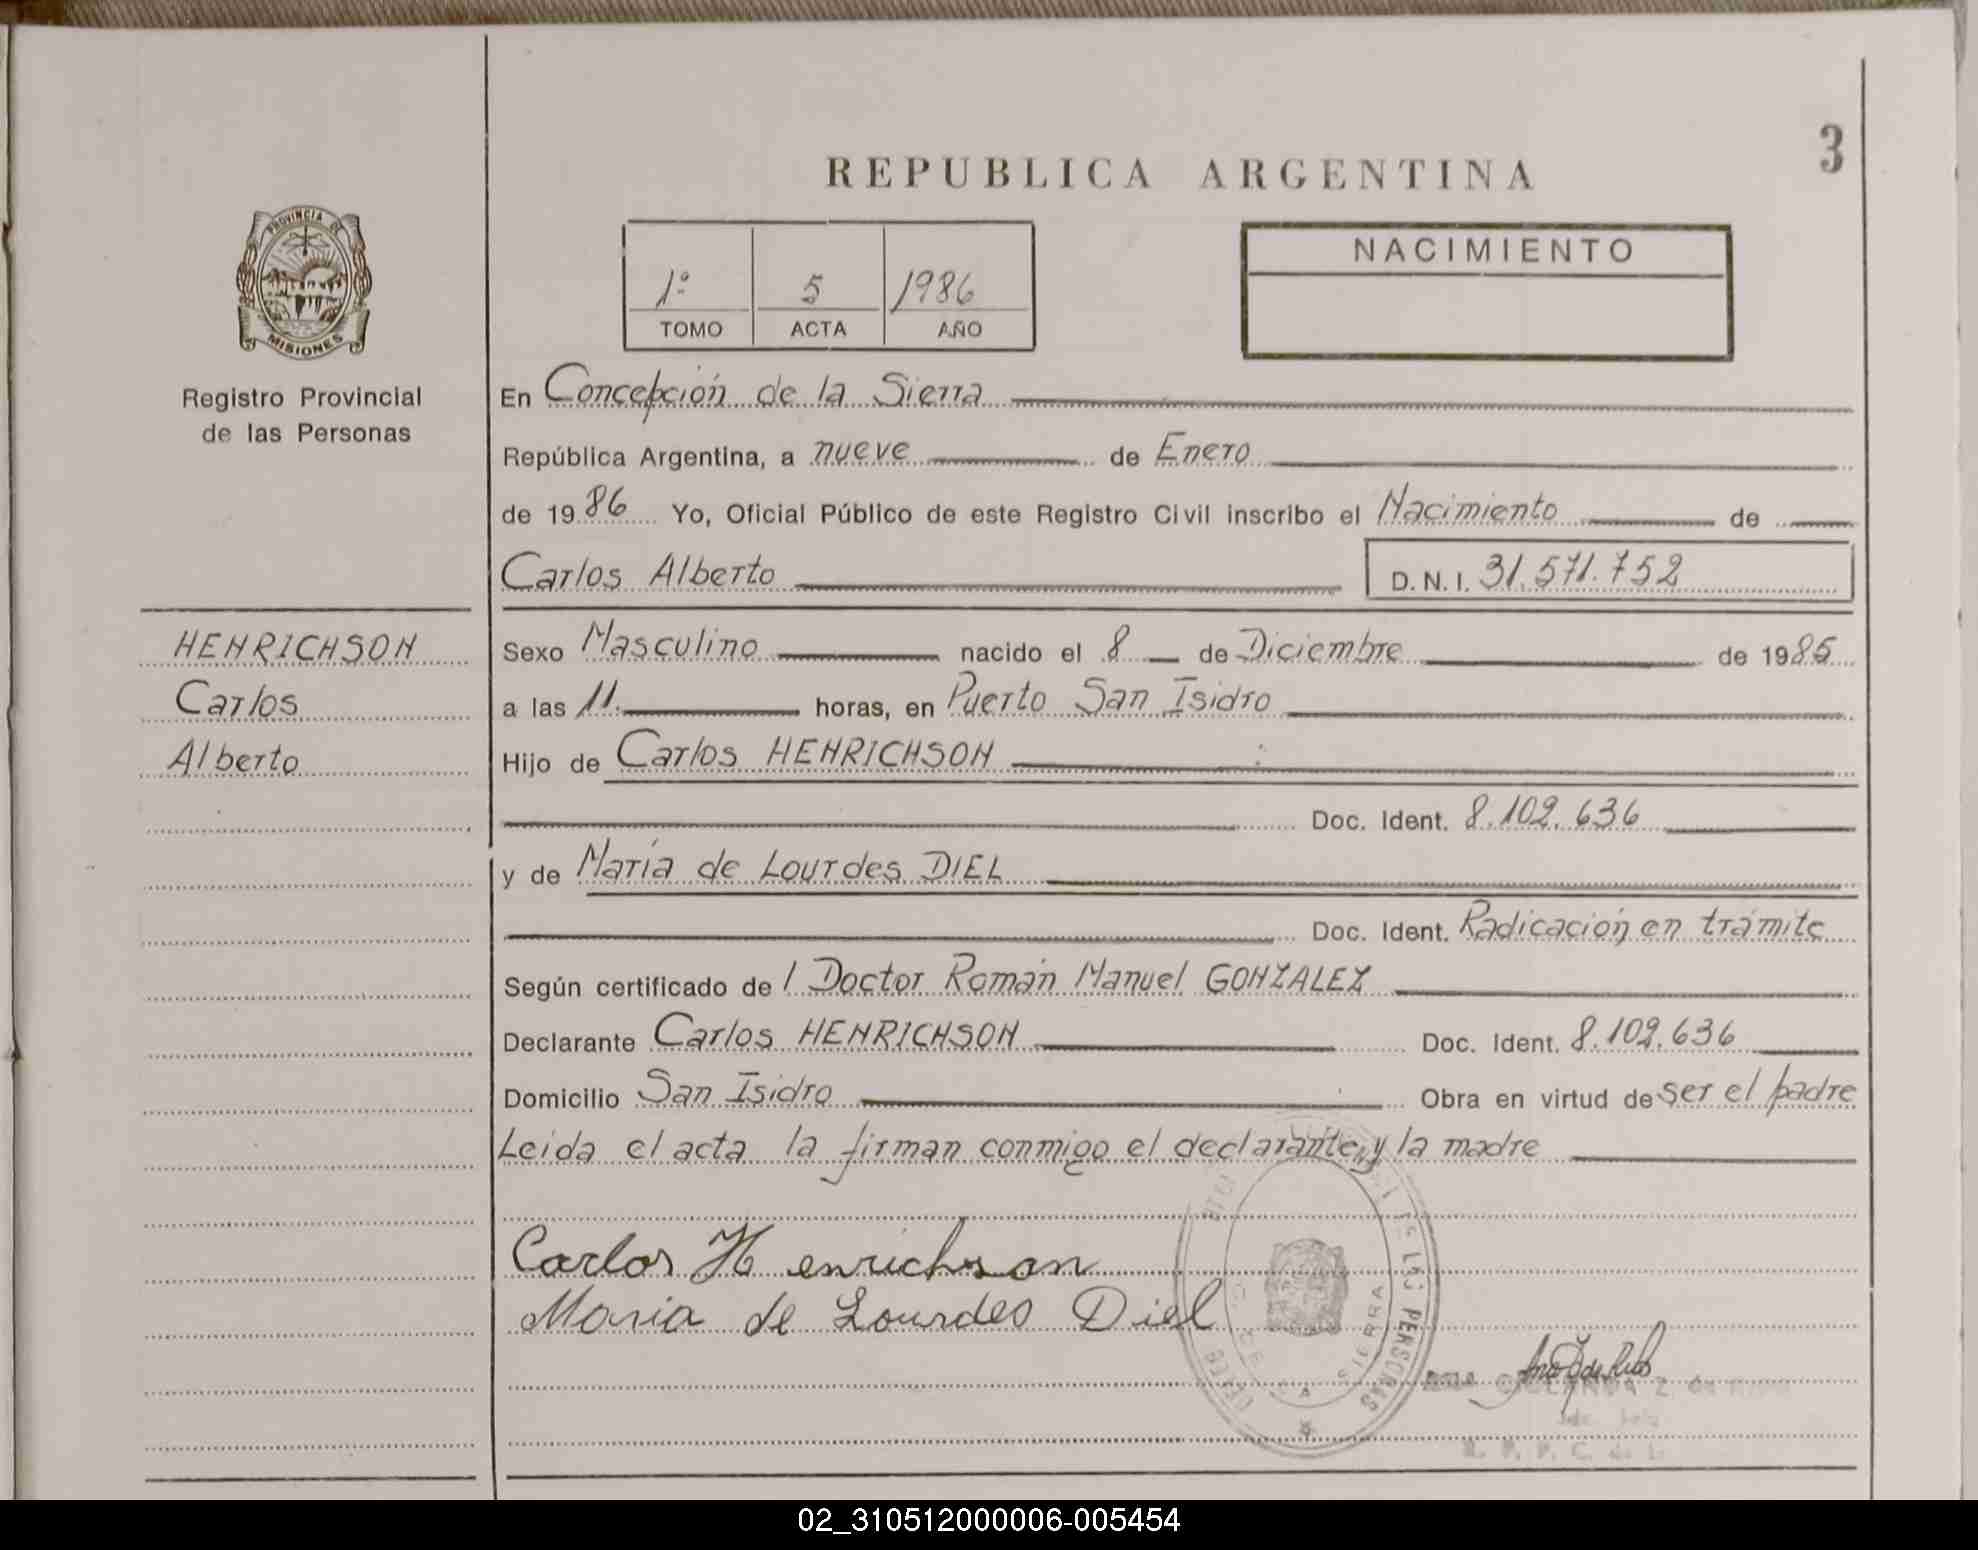 REPUBLICA ARGENTINA
3
PROVINCIA DE
MISIONES
Registro Provincial
de las Personas
1º 5 1986
TOMO ACTA AÑO
NACIMIENTO
En Concepción de la Sierra
República Argentina, a nueve de Enero
de 1986 Yo, Oficial Público de este Registro Civil inscribo el Nacimiento de
Carlos Alberto D.N.I. 31.571.752
HENRICHSON
Carlos
Alberto
Sexo Masculino nacido el 8 de Diciembre de 1985
a las 11. horas, en Puerto San Isidro
Hijo de Carlos HENRICHSON
Doc. Ident. 8.102.636
y de María de Lourdes DIEL
Doc. Ident. Radicación en trámite
Según certificado de l Doctor Román Manuel GONZALEZ
Declarante Carlos HENRICHSON Doc. Ident. 8.102.636
Domicilio San Isidro Obra en virtud de ser el padre
Leida el acta la firman conmigo el declarante y la madre
Carlos Henrichson
Maria de Lourdes Diel
DE LAS PERSONAS
SIERRA
02_310512000006-005454